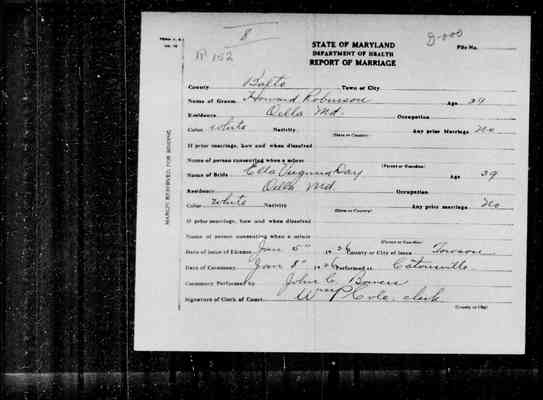 FORM V. S.
8
8-000
No 152
STATE OF MARYLAND
DEPARTMENT OF HEALTH
REPORT OF MARRIAGE
File No.
County Balto Town of City
Name of Groom Howard Robinson Age 29
Residence Oella Md. Occupation
Color white Nativity (State or Country) Any prior Marriage No
If prior marriage, how and when dissolved
Name of person consenting when a minor (Parent or Guardian)
Name of Bride Ella Virginia Day Age 29
Residence Oella Md. Occupation
Color white Nativity (State or Country) Any prior marriage No
If prior marriage, how and when dissolved
Name of person consenting when a minor (Parent or Guardian)
Date of Issue of License Jan 5" 1926 County or City of issue Towson
Date of Ceremony Jan 8" 1926 Performed at Catonsville
Ceremony Performed by John C. Bowers
Signature of Clerk of Court Wm P Cole, clerk
(County or City)
MARGIN RESERVED FOR BINDING